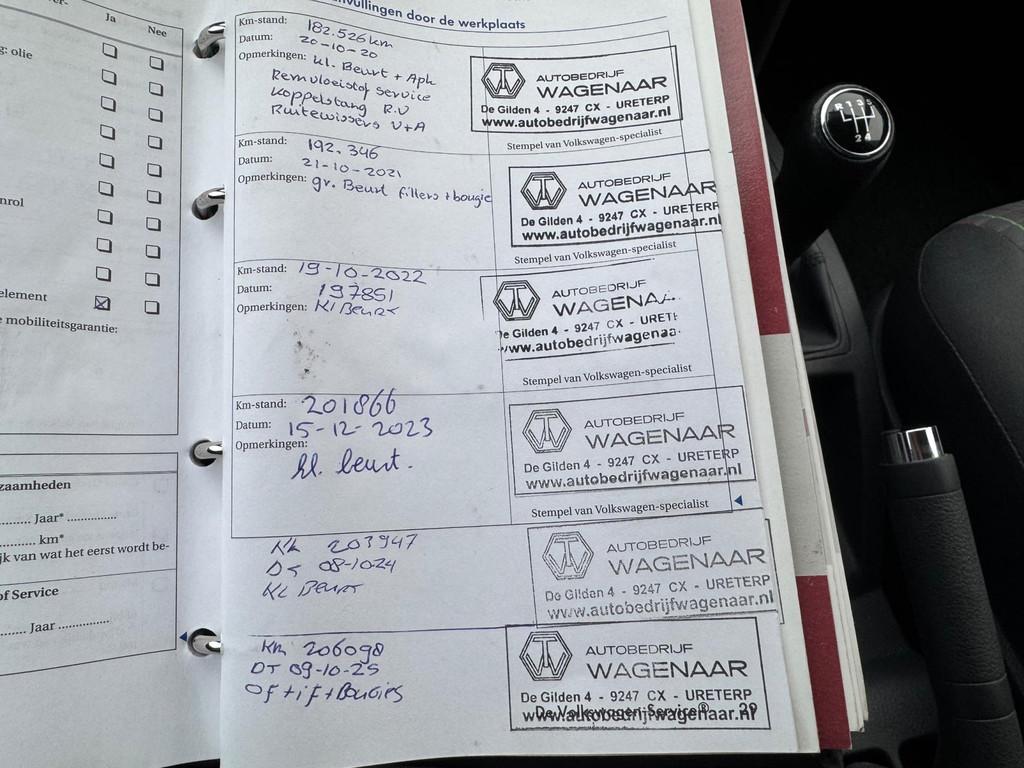 Ja Nee
g: olie
nrol
element
e mobiliteitsgarantie:
zaamheden
Jaar*
km*
jk van wat het eerst wordt be-
of Service
Jaar
anvullingen door de werkplaats
Km-stand: 182.526km
Datum: 20-10-20
Opmerkingen: Kl. Beurt + Apk
Remvloeistof service
Koppelstang R.V
Ruitewissers V+A
AUTOBEDRIJF
WAGENAAR
De Gilden 4 - 9247 CX - URETERP
www.autobedrijfwagenaar.nl
Stempel van Volkswagen-specialist
Km-stand: 192.346
Datum: 21-10-2021
Opmerkingen: gr. Beurt filters + bougie
AUTOBEDRIJF
WAGENAAR
De Gilden 4 - 9247 CX - URETERP
www.autobedrijfwagenaar.nl
Stempel van Volkswagen-specialist
Km-stand: 19-10-2022
Datum: 197851
Opmerkingen: Kl Beurt
AUTOBEDRIJF
WAGENA
De Gilden 4 - 9247 CX - URET
www.autobedrijfwagenaa
Stempel van Volkswagen-specialist
Km-stand: 201866
Datum: 15-12-2023
Opmerkingen:
kl. beurt.
AUTOBEDRIJF
WAGENAAR
De Gilden 4 - 9247 CX - URETERP
www.autobedrijfwagenaar.nl
Stempel van Volkswagen-specialist
KM 203947
DT 08-1024
Kl Beurt
AUTOBEDRIJF
WAGENAAR
De Gilden 4 - 9247 CX - URETERP
www.autobedrijfwagenaar.nl
KM 206098
DT 09-10-25
Of + if + Bougies
AUTOBEDRIJF
WAGENAAR
De Gilden 4 - 9247 CX - URETERP
www.autobedrijfwagenaar.nl
De Volkswagen Service® 29
R 1 3 5
2 4